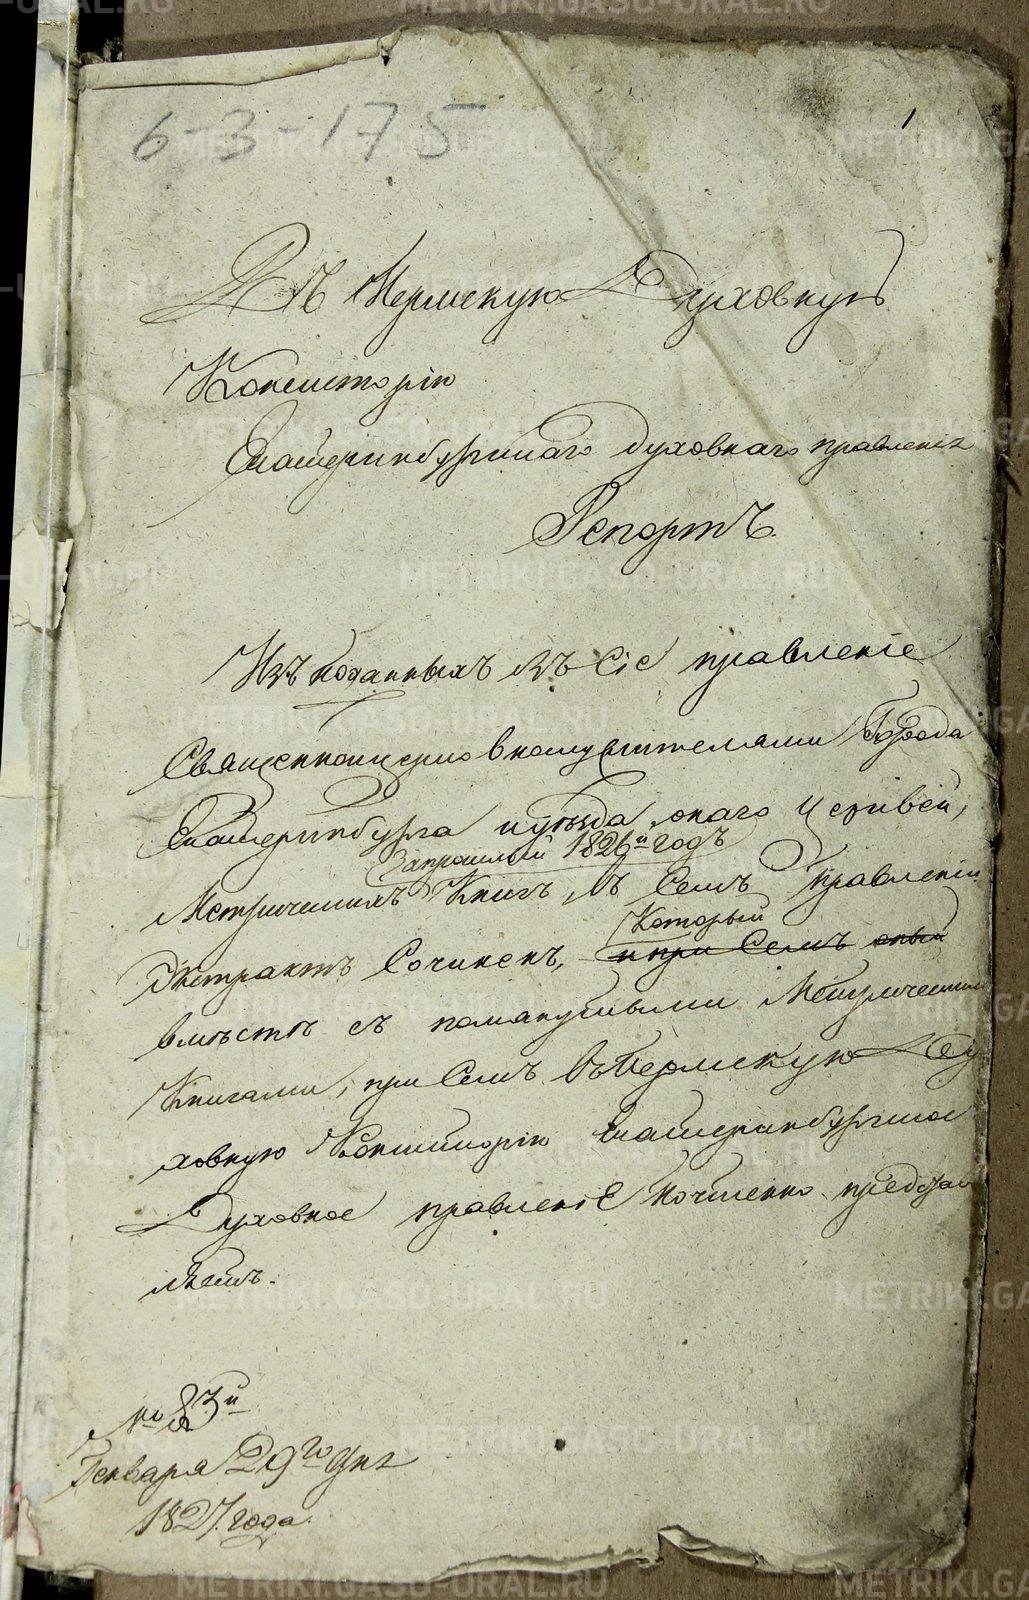 6-3-175
1
Въ Пермскую Духовную
Консисторію
Екатеринбургскаго духовнаго правленія
Репортъ.
Изъ поданныхъ въ сіе правленіе
Священноцерковнослужителями Города
Екатеринбурга и уѣзда онаго церквей,
за прошлый 1826й годъ
Метрическихъ Книгъ, въ Семъ правленіи
Экстрактъ Сочиненъ, который
и при Семъ оный
вмѣстѣ съ помянутыми Метрическими
Книгами, при Семъ въ Пермскую Ду
ховную Консисторію Екатеринбургское
Духовное правленіе почтенно представ
ляетъ.
№ 83й
Генваря 29го дня
1827 года.
METRIKI.GASU-URAL.RU